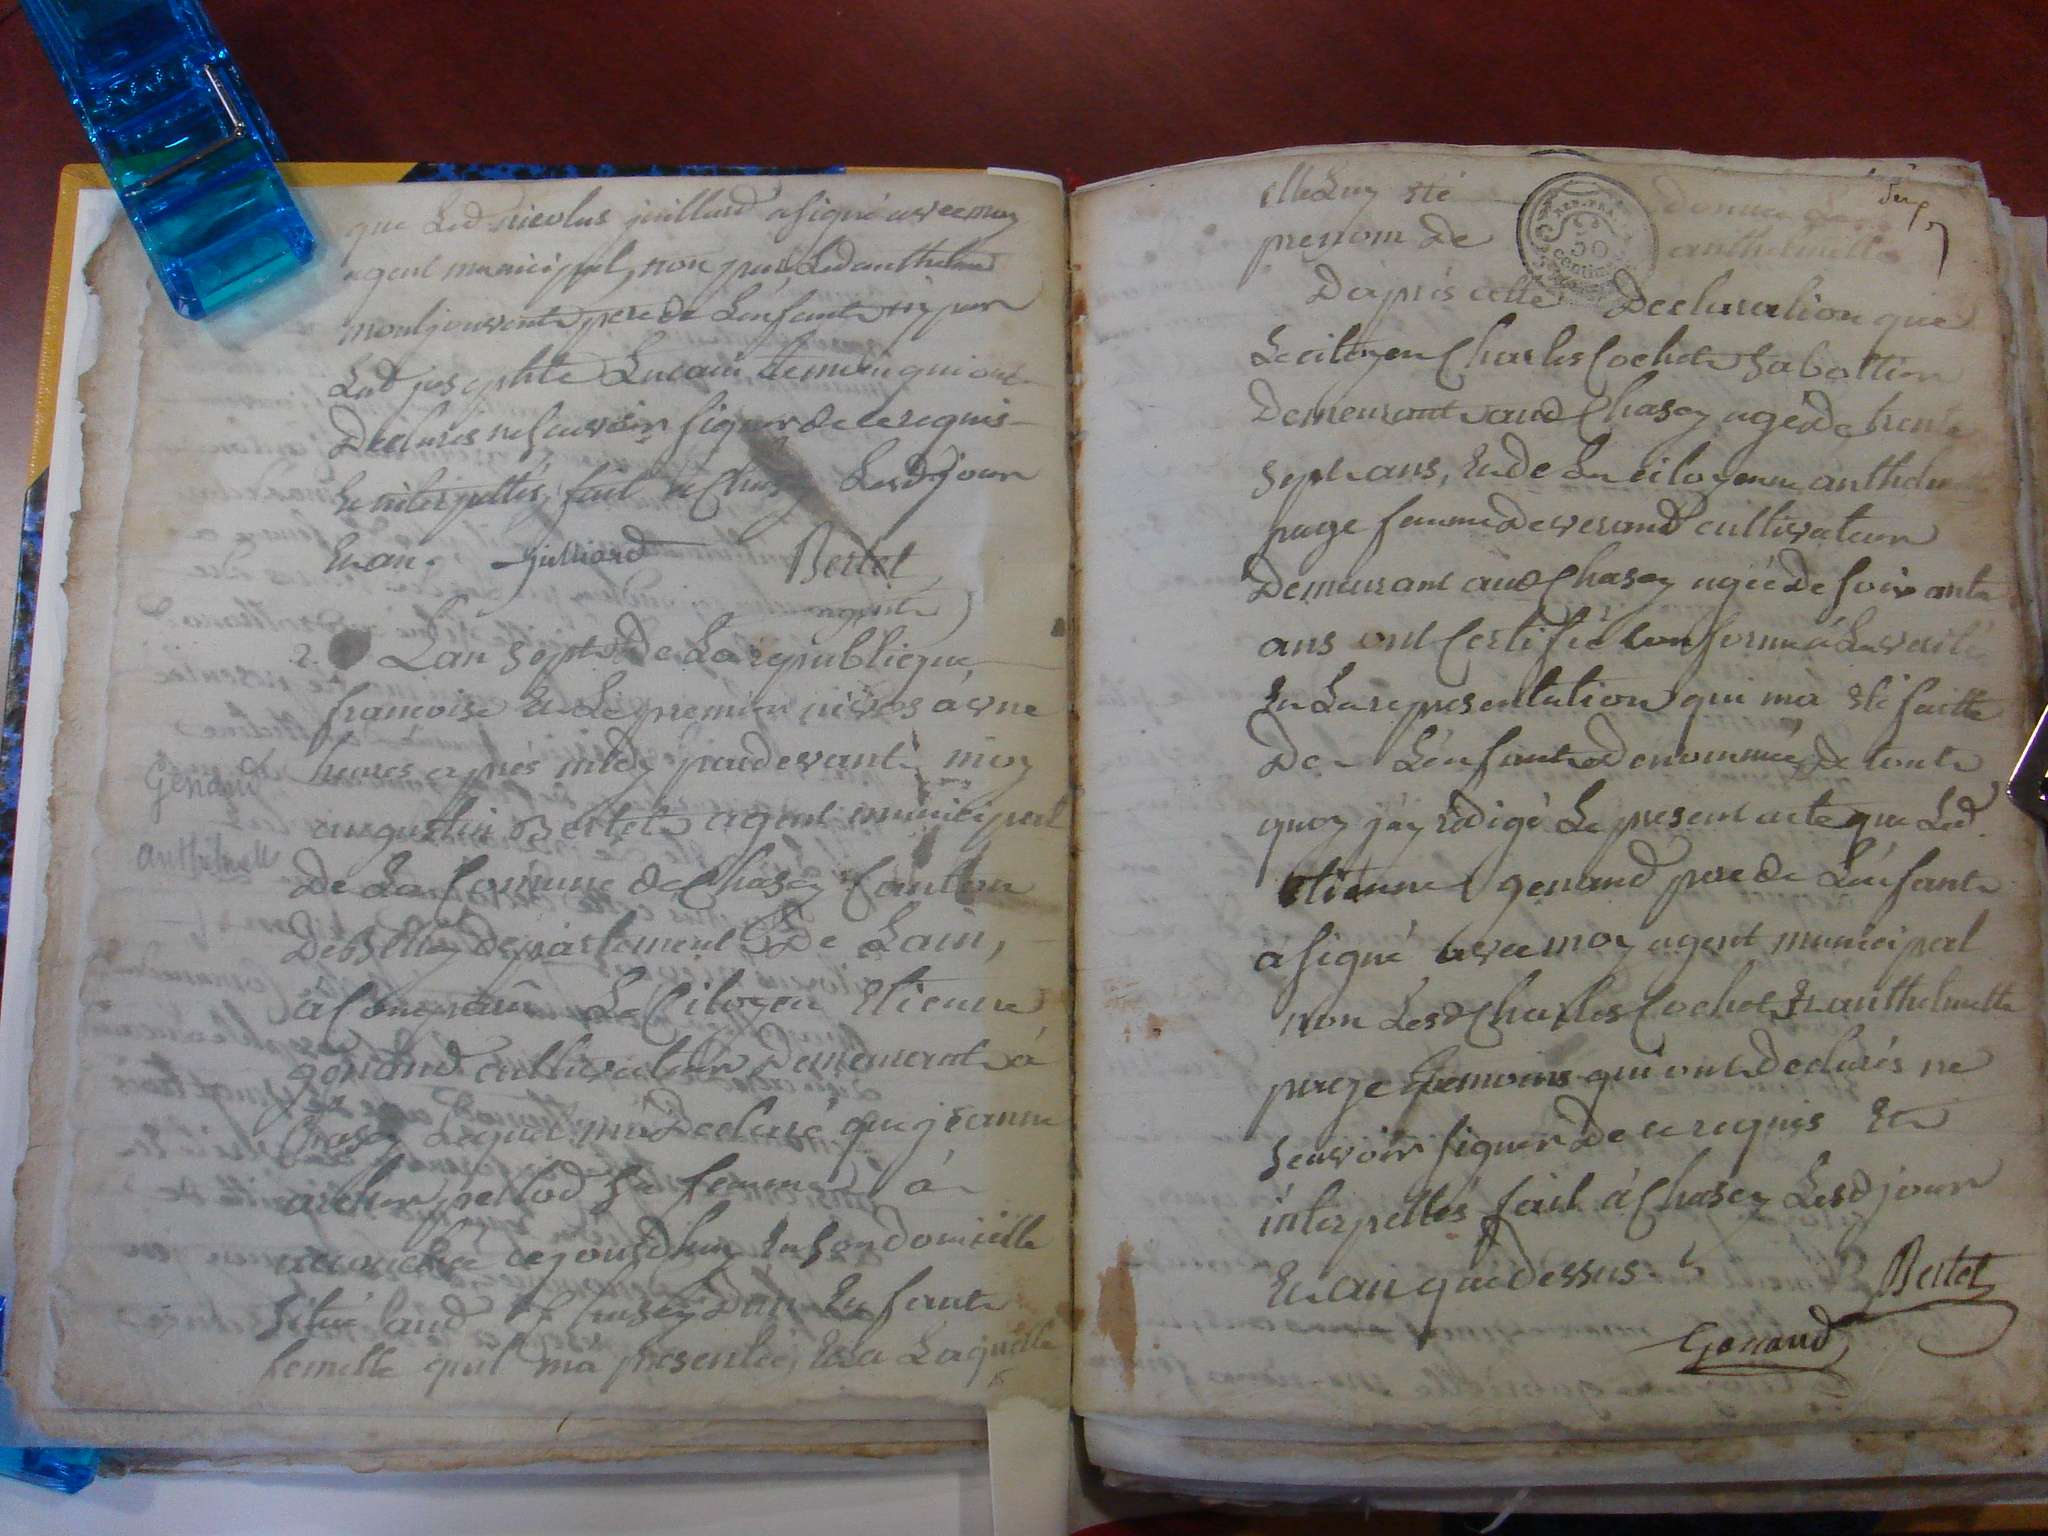 que Led nicolas juillard a signé avec moy
agent municipal, non pas Led anthelme
montjouvent pere de L'enfant ny par
Led josephte Lucain temoin qui ont
Declarés ne scavoir signer de ce requis
Et interpellés, fait a Chasey Lesd jour
Et an. juilliard Bertet
agent
2. Lan sept de La republique
francoise Et Le premier nivos à vne
heures apres midy pardevant moy
augustin Bertet agent municipal
De La Comune de Chasey Canton
De Belley departement De Lain,
à Comparû Le Citoyen Etienne
gonand cultivateur Demeurant à
Chasey Lequel m'a Declaré que jeanne
pellod sa femme à
accouchée cejourdhuy En son domicille
situé aud Chasey D'un Enfant
femelle quil ma presentée, Et a Laquelle
Genand
anthelmette
elle Luy Eté donné Le
prenom de anthelmette
REP. FRA.
50
centimes
D'apres cette Declaration que
Le citoyen Charles Cochet Sabottier
Demeurant aud Chasey agé de trente
sept ans, Et de La citoyenne anthelmette
page femme de verand cultivateur
Demeurant aud Chasey agée De soixante
ans ont Certifié conforme à La verité
Et La representation qui ma Eté faitte
De L'enfant denommée, de tout
quoy j'ay rédigé Le present acte que Led.
Etienne genand pere de L'enfant
à signé avec moy agent municipal
non Lesd Charles Cochet Et anthelmette
page temoins qui ont declarés ne
scavoir signer de ce requis Et
interpellés fait à Chasey Lesd jour
Et an que dessus.
Bertet
Genand